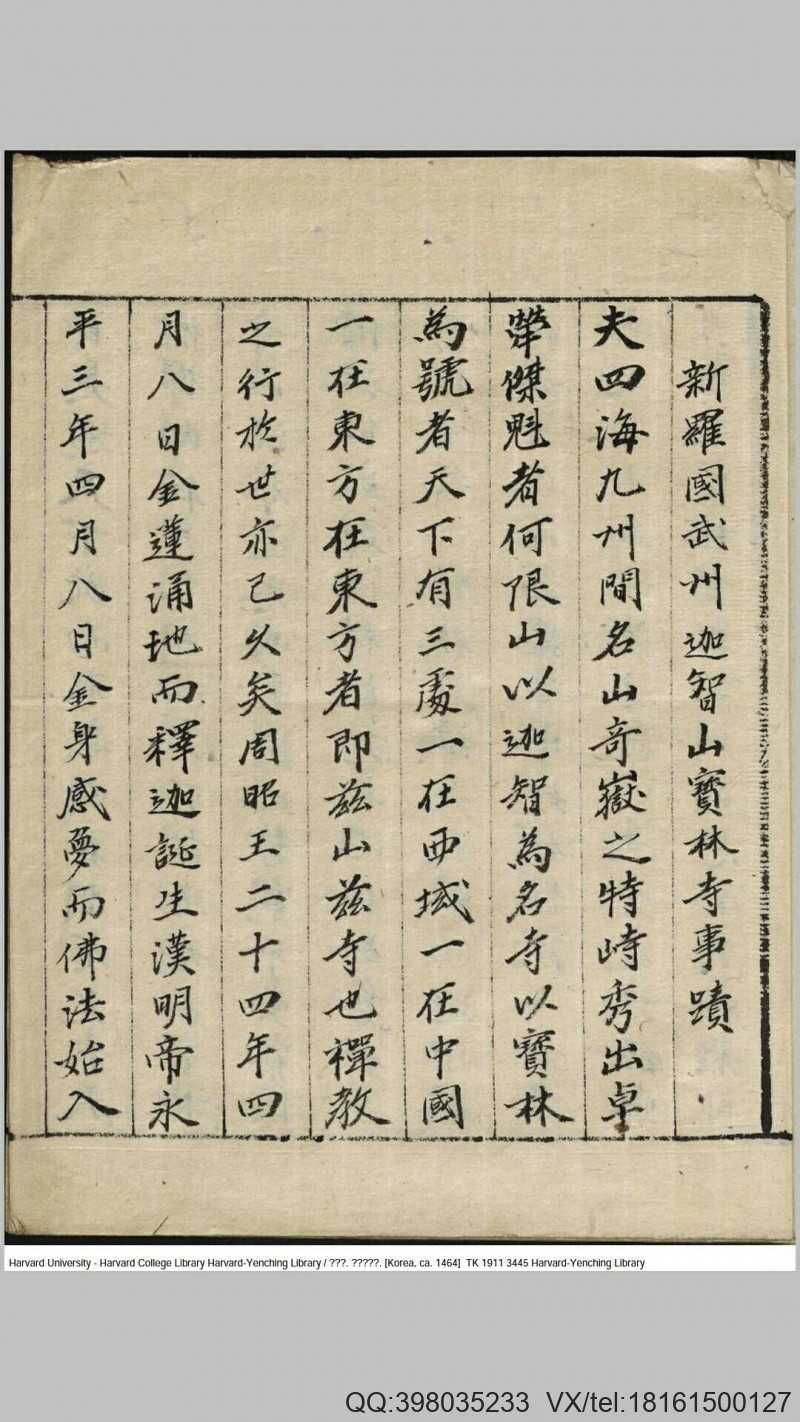 新羅國武州迦智山寶林寺事蹟
夫四海九州間名山奇嶽之特峙秀出卓
犖傑魁者何限山以迦智為名寺以寶林
為號者天下有三處一在西域一在中國
一在東方在東方者即茲山茲寺也禪教
之行於世亦已久矣周昭王二十四年四
月八日金蓮涌地而釋迦誕生漢明帝永
平三年四月八日金身感夢而佛法始入
Harvard University - Harvard College Library Harvard-Yenching Library / ???. ?????. [Korea, ca. 1464] TK 1911 3445 Harvard-Yenching Library
QQ:398035233 VX/tel:18161500127